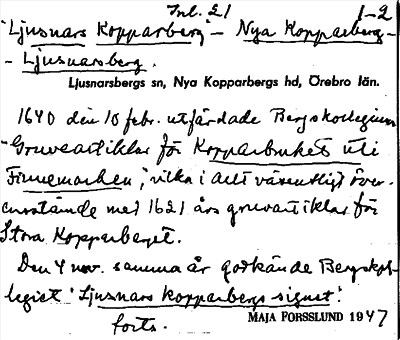 Inl. 21 1-2
"Ljusnars Kopparberg" - Nya Kopparberg -
- Ljusnarsberg.
Ljusnarsbergs sn, Nya Kopparbergs hd, Örebro län.
1640 den 10 febr. utfärdade Bergskollegium
"Gruveartiklar för Kopparbruket uti
Finnemarken", vilka i allt väsentligt över-
ensstämde med 1621 års gruvartiklar för
Stora Kopparberget.
Den 4 nov. samma år godkände Bergskol-
legiet "Ljusnars kopparbergs signet".
forts. MAJA FORSSLUND 1947